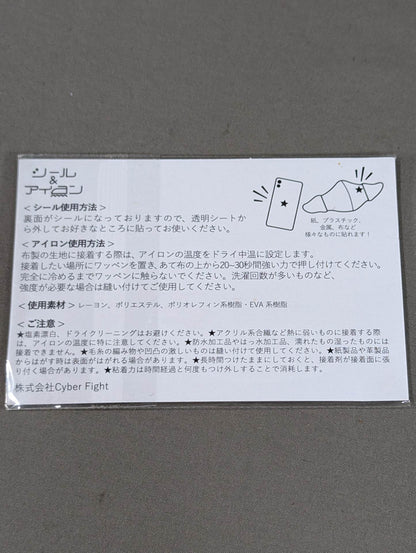 シール
&
アイロン
紙、プラスチック、
金属、布など
様々なものに貼れます！
< シール使用方法 >
裏面がシールになっておりますので、透明シートか
ら外してお好きなところに貼ってお使いください。
< アイロン使用方法 >
布製の生地に接着する際は、アイロンの温度をドライ中温に設定します。
接着したい場所にワッペンを置き、あて布の上から20~30秒間強い力で押し付けてください。
完全に冷めるまでワッペンに触らないでください。洗濯回数が多いものなど、
強度が必要な場合は縫い付けてご使用してください。
< 使用素材 > レーヨン、ポリエステル、ポリオレフィン系樹脂・EVA 系樹脂
< ご注意 >
★塩素漂白、ドライクリーニングはお避けください。★アクリル系合繊など熱に弱いものに接着する際
は、アイロンの温度に特に注意してください。★防水加工品やはっ水加工品、濡れたもの湿ったものには
接着できません。★毛糸の編み物や凹凸の激しいものは縫い付けて使用してください。★紙製品や革製品
からはがす時は表面がはがれる場合があります。★長時間つけたままにしておくと、接着剤が接着面に張
り付く場合があります。★粘着力は時間経過と何度もつけ外しすることで消耗します。
株式会社Cyber Fight